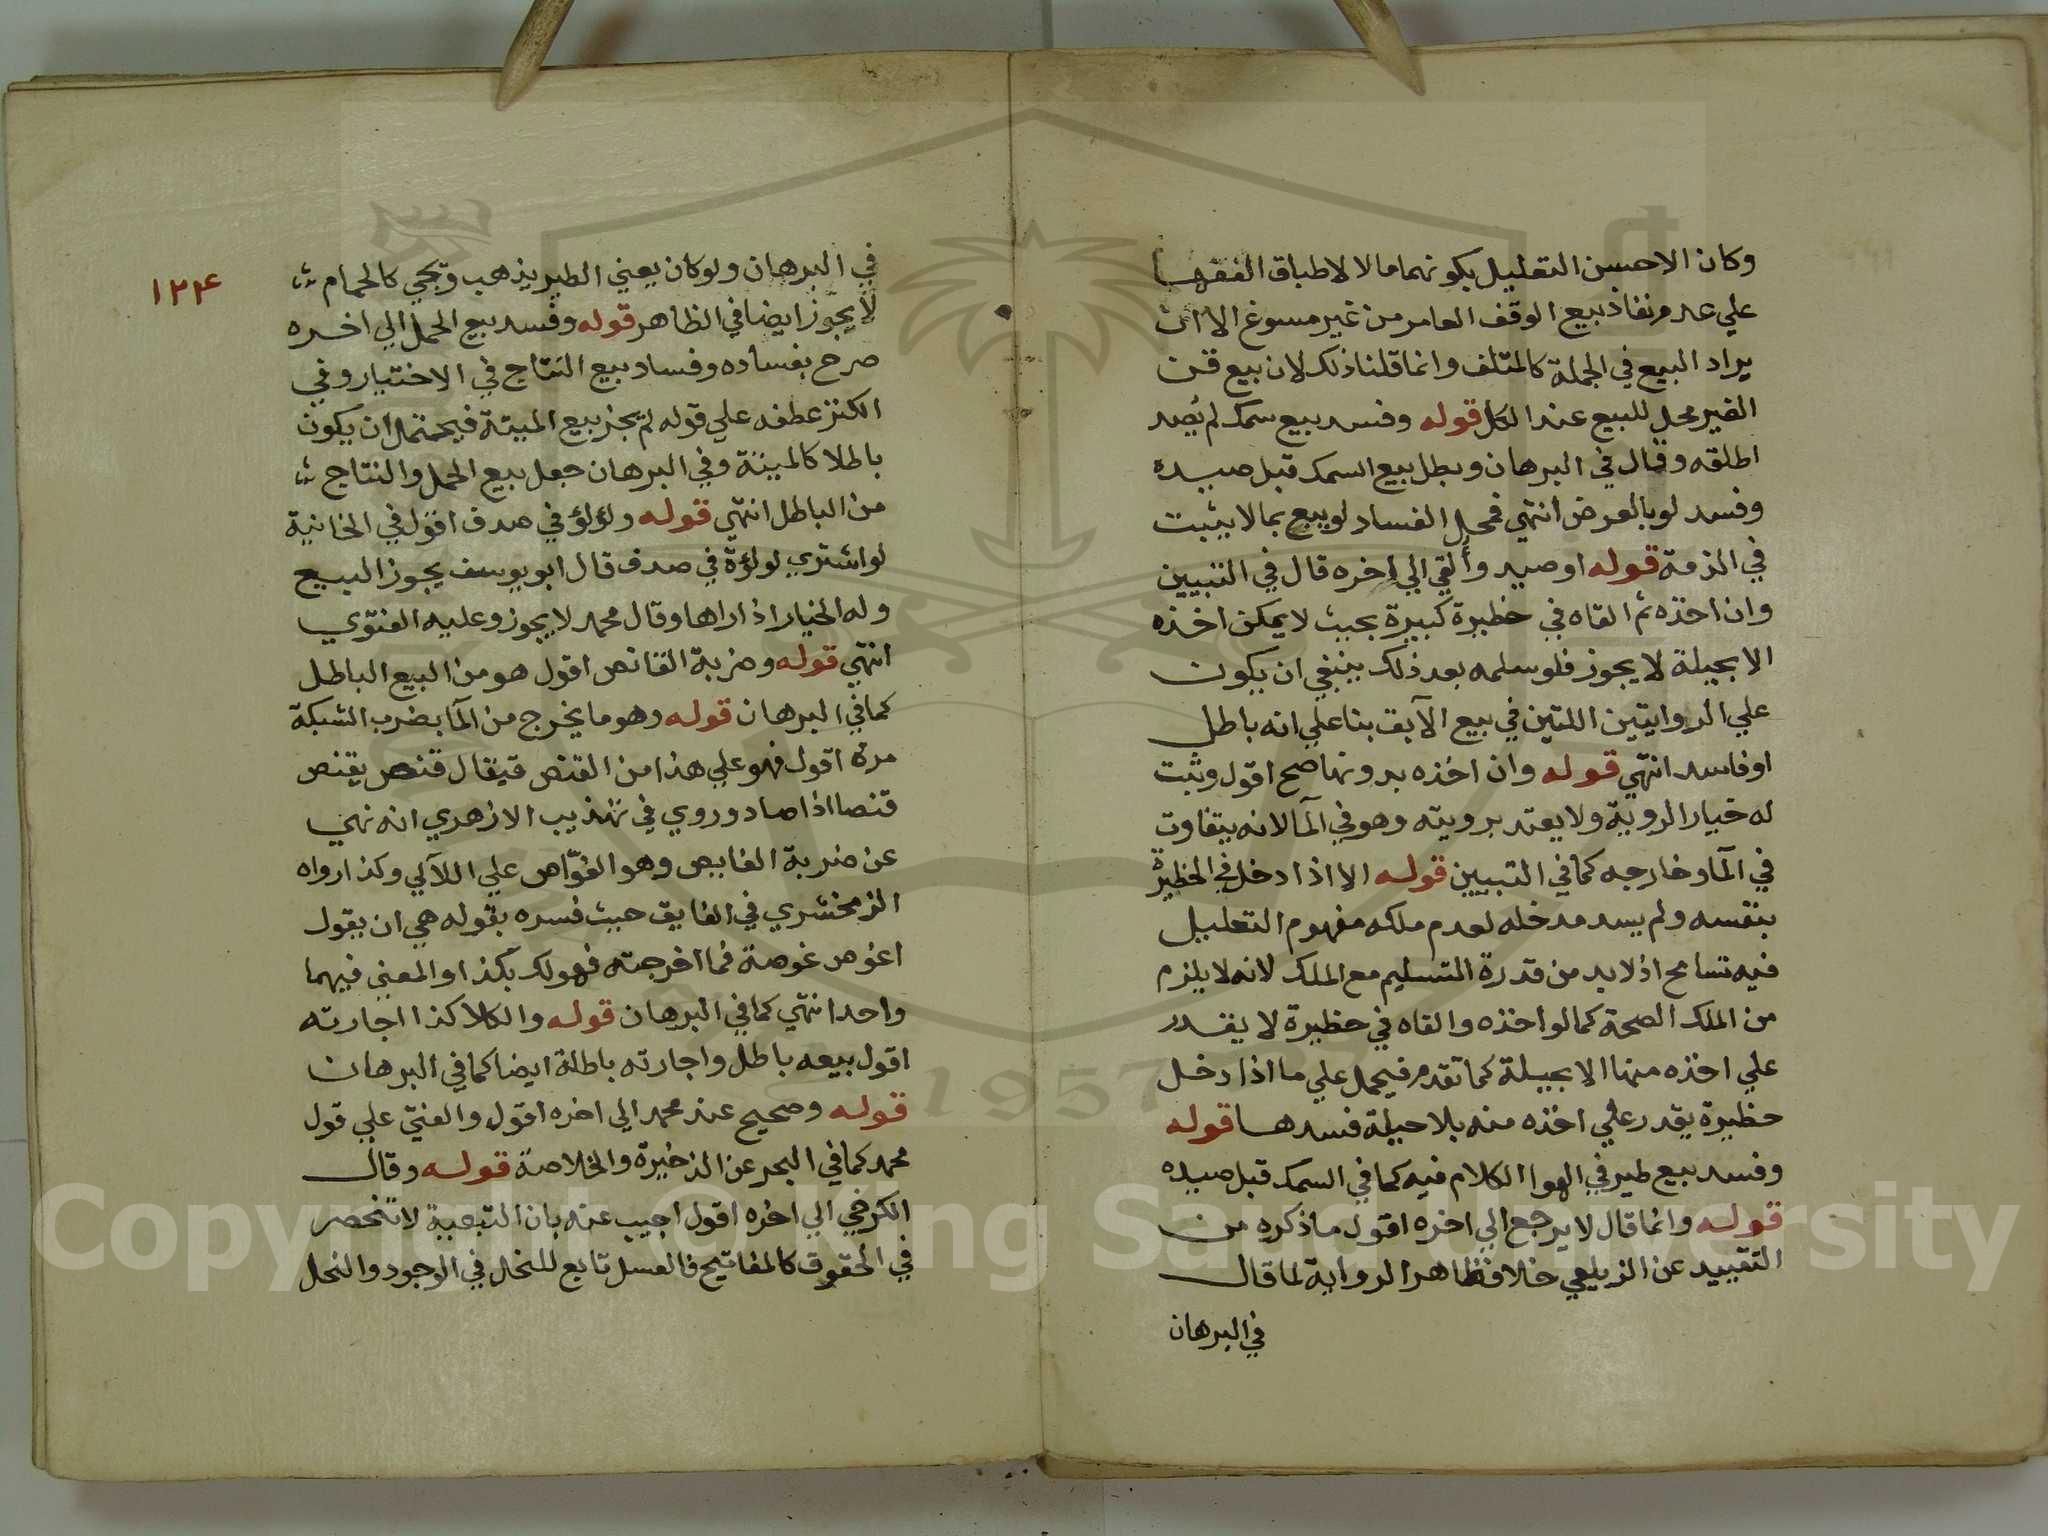 وكان الاحسن التعليل بكونهما مالا لاطباق الفقها
علي عدم نفاذ بيع الوقف العامر من غير مسوغ الا ان
يراد البيع في الجملة كالمتلف وانما قلنا ذلك لان بيع قن
الغير محل للبيع عند الكل قوله وفسد بيع سمك لم يُصد
اطلقه وقال في البرهان وبطل بيع السمك قبل صيده
وفسد لو بالعرض انتهي فمحل الفساد لو بيع بما لا يثبت
في الذمة قوله او صيد وألقي الي اخره قال في التبيين
وان اخذه ثم القاه في حظيرة كبيرة بحيث لا يمكن اخذه
الا بحيلة لا يجوز فلو سلمه بعد ذلك ينبغي ان يكون
علي الروايتين اللتين في بيع الآبق بنا علي انه باطل
او فاسد انتهي قوله وان اخذه بدونها صح اقول وثبت
له خيار الروية ولا يعتد برويته وهو في المآ لانه يتفاوت
في المآ وخارجه كما في التبيين قوله الا اذا دخل في الحظيرة
بنفسه ولم يسد مدخله لعدم ملكه مفهوم التعليل
فيه تسامح اذ لا بد من قدرة التسليم مع الملك لانه لا يلزم
من الملك الصحة كما لو اخذه والقاه في حظيرة لا يقدر
علي اخذه منها الا بحيلة كما تقدم فيحمل علي ما اذا دخل
حظيرة يقدر علي اخذه منه بلا حيلة فسدها قوله
وفسد بيع طير في الهوا الكلام فيه كما في السمك قبل صيده
قوله وانما قال لا يرجع الي اخره اقول ما ذكره من
التقييد عن الزيلعي خلاف ظاهر الرواية لما قال
في البرهان
١٢٤
في البرهان ولو كان يعني الطير يذهب ويجي كالحمام
لا يجوز ايضا في الظاهر قوله وفسد بيع الحمل الي اخره
صرح بفساده وفساد بيع النتاج في الاختيار وفي
الكنز عطفه علي قوله لم يجز بيع الميتة فيحتمل ان يكون
باطلا كالميتة وفي البرهان جعل بيع الحمل والنتاج
من الباطل انتهي قوله ولؤلؤ في صدف اقول في الخانية
لو اشتري لولؤة في صدف قال ابو يوسف يجوز البيع
وله الخيار اذا راها وقال محمد لا يجوز وعليه الفتوي
انتهي قوله وضربة القانص اقول هو من البيع الباطل
كما في البرهان قوله وهو ما يخرج من المآ بضرب الشبكة
مرة اقول فهو علي هذا من القنص فيقال قنص يقنص
قنصا اذا صاد وروي في تهذيب الازهري انه نهي
عن ضربة الغايص وهو الغوّاص علي اللآلي وكذا رواه
الزمخشري في الفايق حيث فسره بقوله هي ان يقول
اغوص غوصة فما اخرجته فهو لك بكذا والمعني فيهما
واحد انتهي كما في البرهان قوله والكلا كذا اجارته
اقول بيعه باطل واجارته باطلة ايضا كما في البرهان
قوله وصحيح عند محمد الي اخره اقول والفتي علي قول
محمد كما في البحر عن الذخيرة والخلاصة قوله وقال
الكرخي الي اخره اقول اجيب عنه بان التبعية لا تنحصر
في الحقوق كالمفاتيح فالعسل تابع للنحل في الوجود والنحل
Copyright © King Saud University
1957